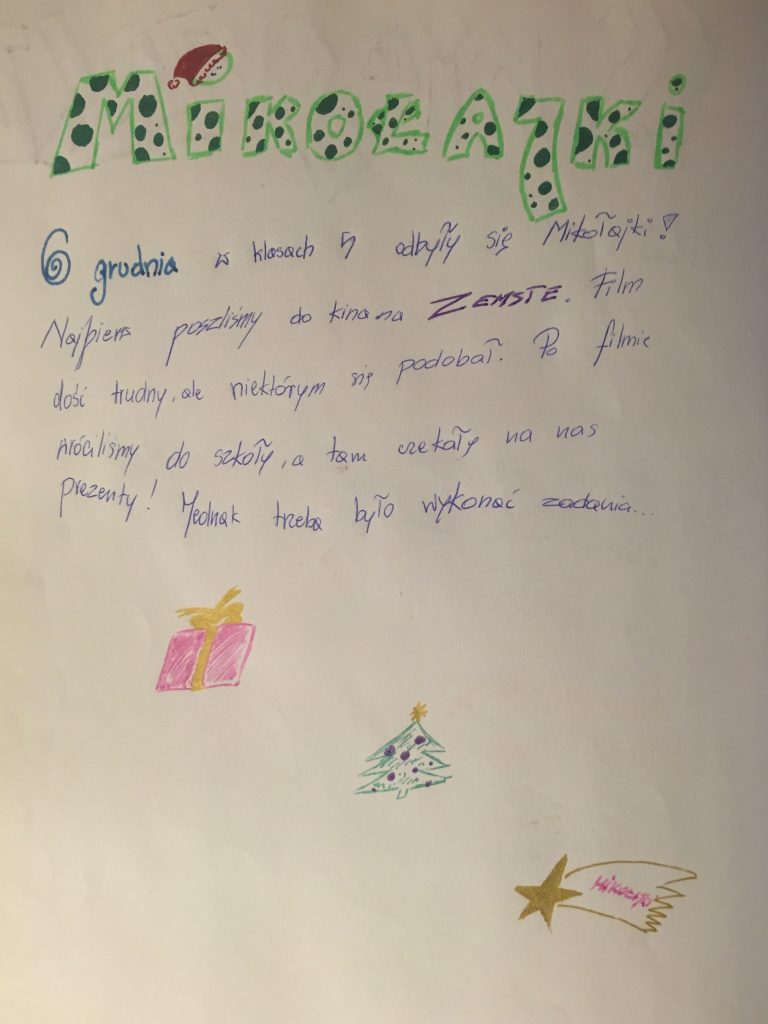 MiKOŁAjKi
6 grudnia w klasach 5 odbyły się Mikołajki!
Najpierw poszliśmy do kina na ZEMSTE. Film
dość trudny, ale niektórym się podobał. Po filmie
wróciliśmy do szkoły, a tam czekały na nas
prezenty! Jednak trzeba było wykonać zadania...